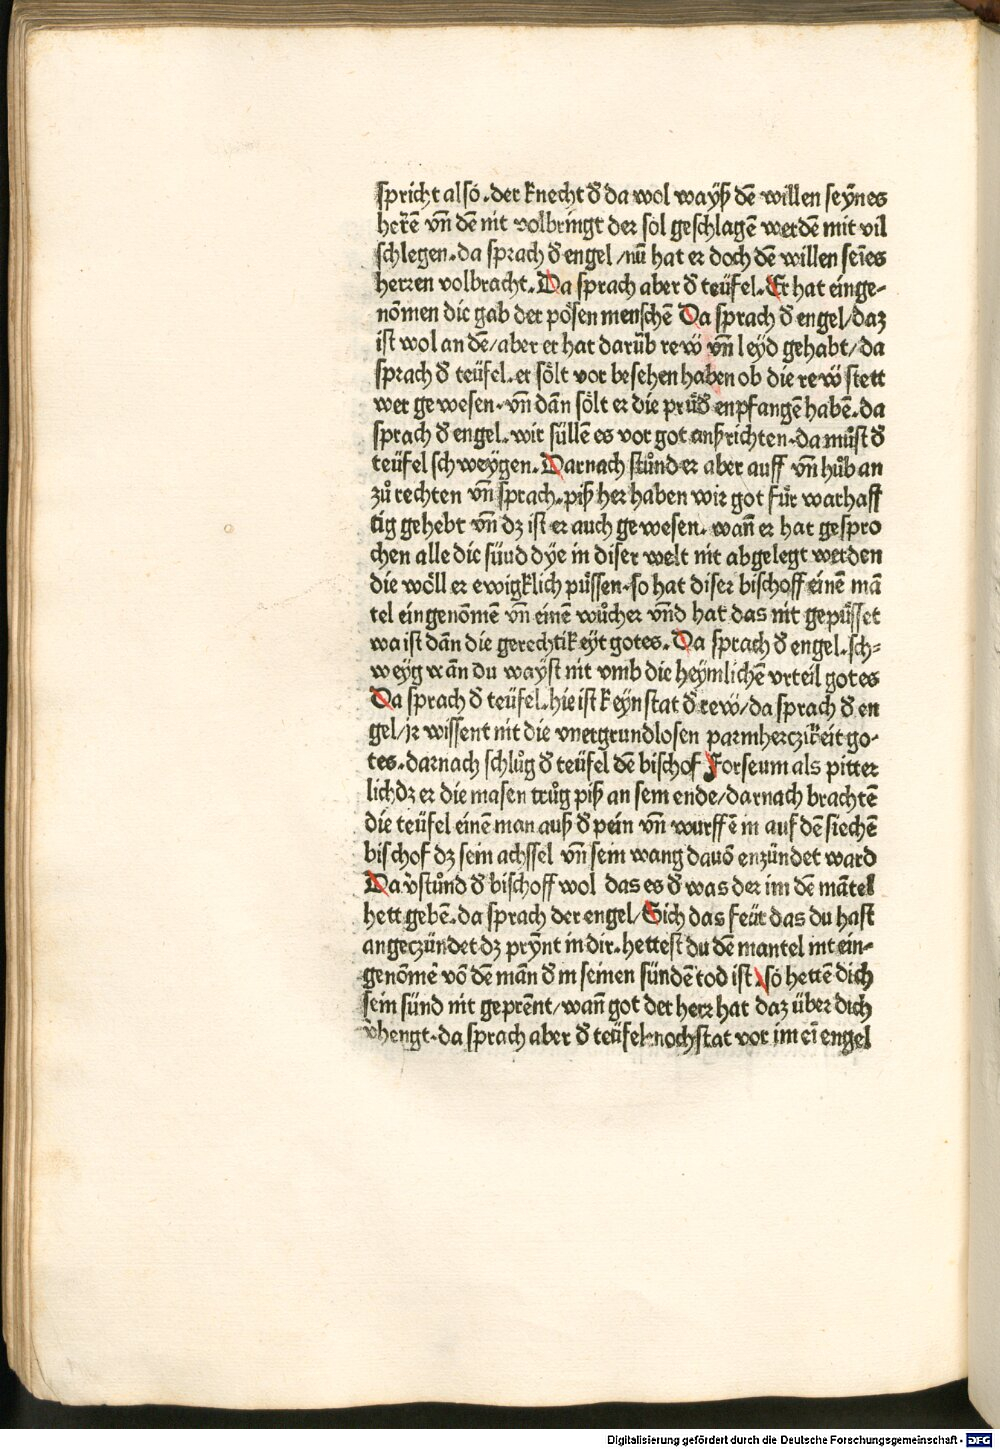 spricht also. der knecht đ da wol wayß dē willen seynes
herrē vn̄ dē nit volbringt der sol geschlagē werdē mit vil
schlegen. da sprach đ engel / nū hat er doch dē willen seīes
herren volbracht. Da sprach aber đ teüfel. Er hat einge-
nōmen die gab der pösen menschē Da sprach đ engel / daz
ist wol an dē / aber er hat darüb rew vn̄ leyd gehabt / da
sprach đ teüfel. er sölt vor besehen haben ob die rew stett
wer gewesen. vn̄ dān sölt er die prüđ enpfangē haben. da
sprach đ engel. wir süllē es vor got außrichten. da můst đ
teüfel schweygen. Darnach stůnd er aber auff vn̄ hůb an
zů rechten vn̄ sprach. piß her haben wir got für warhaff
tig gehebt vn̄ dz ist er auch gewesen. wan̄ er hat gespro
chen alle die süud dye in diser welt nit abgelegt werden
die wöll er ewigklich püssen. so hat diser bischoff einē mā
tel eingenōmē vn̄ einē wůcher vn̄d hat das nit gepüsset
wa ist dān die gerechtikeyt gotes. Da sprach đ engel. sch-
weyg wān du wayst nit vmb die heymlichē vrteil gotes
Da sprach đ teüfel. hie ist keyn stat đ rew / da sprach đ en
gel / jr wissent nit die vnergrundlosen parmherczikeit go-
tes. darnach schlůg đ teüfel dē bischof Forseum als pitter
lich dz er die masen trůg piß an sein ende / darnach brachtē
die teüfel einē man auß đ pein vn̄ wurffē in auf dē siechē
bischof dz sein achssel vn̄ sein wang dauō enzündet ward
Da v̄stůnd đ bischoff wol das es đ was der im dē mātel
hett gebē. da sprach der engel / Sich das feür das du hast
angeczündet dz prynt in dir. hettest du dē mantel nit ein-
genōmē vō dē mān đ in seinen sündē tod ist. so hettē dich
sein sünd nit geprēnt / wan̄ got der herr hat daz über dich
v̄hengt. da sprach aber đ teüfel noch stat vor im eī engel
Digitalisierung gefördert durch die Deutsche Forschungsgemeinschaft - DFG